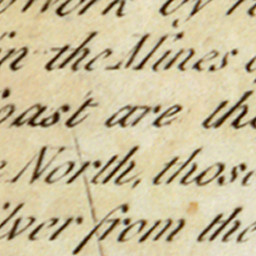 work by
in the Mines
oast are the
North, those
lver from the